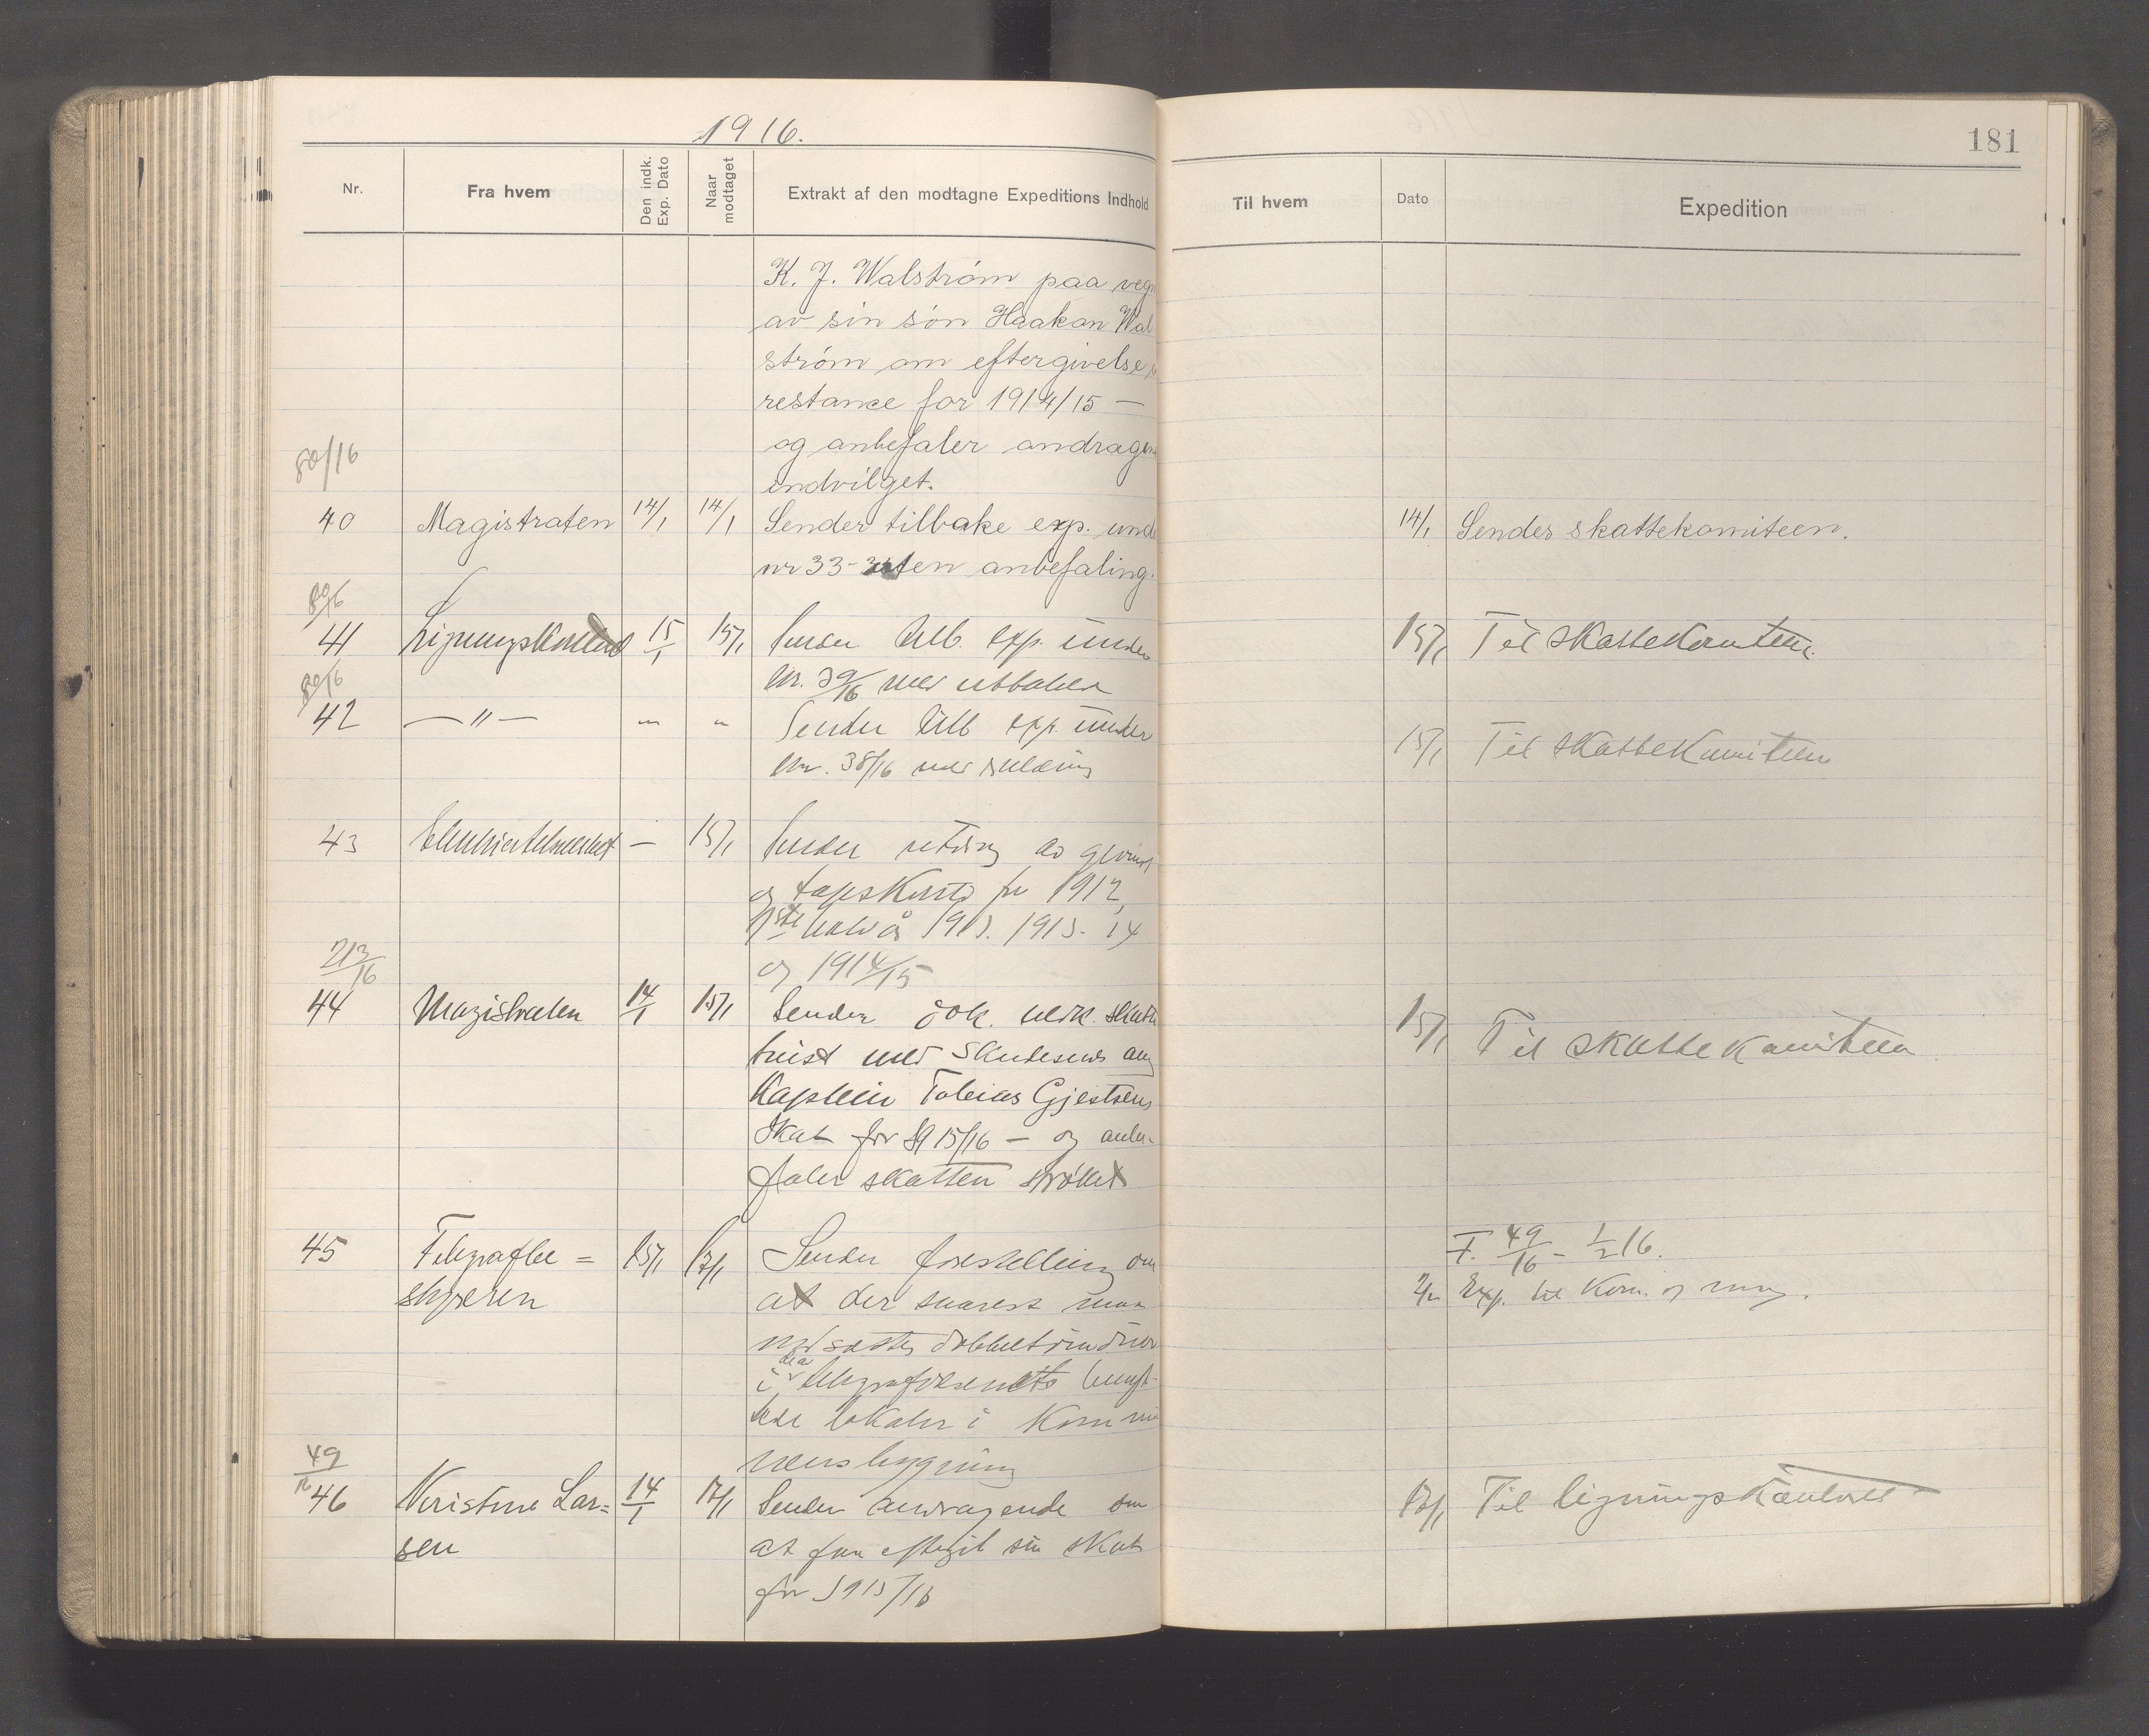 1916.
181
Nr.
Fra hvem
Den indk. Exp. Dato
Naar modtaget
Extrakt af den modtagne Expeditions Indhold
Til hvem
Dato
Expedition
K. J. Walström paa veg
av sin søn Haakon Wal
strøm om eftergivelse
restanse for 1914/15 —
og anbefaler andragen
indvilget.
80/16
40 Magistraten 14/1 14/1 Sender tilbake exp. unde
nr 33 - uten anbefaling.
14/1 Sendes skattekomiteen.
41 15/1 15/1 Sender tilb. exp. under
nr. 39/16 med uttalelse
15/1 Til skattekomiteen.
80/16
42 — " — " " Sender tilb exp. under
Nr. 38/16 med
15/1 Til skattekomiteen
43 — 15/1 Sender utdrag av gevinst
og tapskonto for 1912,
1ste halvår 1913. 1913-14
og 1914/15
213/16
44 Magistraten 14/1 15/1 Sender dok. vedk. skatte
tvist med Skudesnes ang
Kaptein Tobias Gjestsens
skat for 1915/16 — og anbe-
faler skatten strøket
15/1 Til skattekomiteen
45 Telegrafbe = 15/1 17/1 Sender forestilling om
styreren
at der snarest maa
indsættes dobbeltvinduer
i de av telegrafvesenets benyt-
tede lokaler i Kommu
nens bygning
F. 49/16 - 1/2 16.
2/2 Exp. til Kom. og mag.
49/16
46 Kristine Lar= 14/1 17/1 Sender andragende om
sen
at faa eftergit sin skat
for 1915/16
17/1 Til ligningskontoret